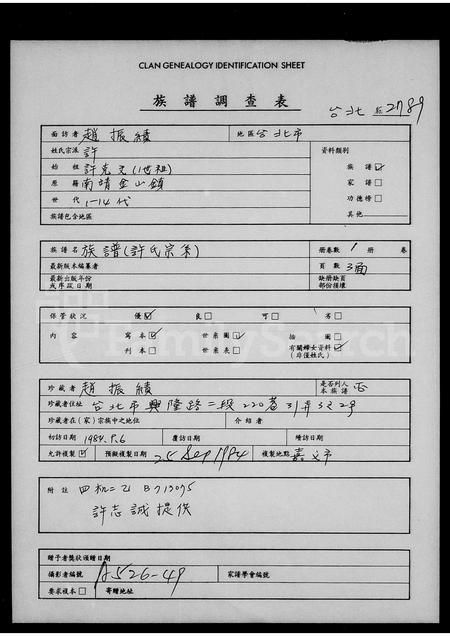 CLAN GENEALOGY IDENTIFICATION SHEET
族譜調查表
台北 2789
面訪者 趙振績 地區 台北市
姓氏宗派 許 資料類別
始祖 許克文(1世祖) 族譜 ☑
原籍 南靖金山鎮 家譜 □
世代 1-14代 功德榜 □
族譜包含地區 其他
族譜名 族譜(許氏宗系) 冊卷數 1 冊 卷
最新版本編纂者 頁數 3面
最新出版年份或序政日期 缺冊缺頁部份損壞
保管狀況 優 ☑ 良 □ 可 □ 劣 □
內容 寫本 ☑ 世系圖 ☑ 插圖 □
刊本 □ 世系表 □ 有關婦女資料 ☑ (非僅姓氏)
珍藏者 趙振績 是否列入本族譜 否
珍藏者住址 台北市興隆路二段220巷31弄3之2号
珍藏者在(家)宗族中之地位 介紹者
初訪日期 1984.8.6 覆訪日期 續訪日期
允許複製 ☑ 預擬複製日期 25 Sep 1984 複製地點 嘉义市
附註 四机二乙 B713075
許志誠提供
贈予者獎狀頒贈日期
攝影者編號 A526-49 家譜學會編號
要求複本 □ 寄贈地址
FamilySearch